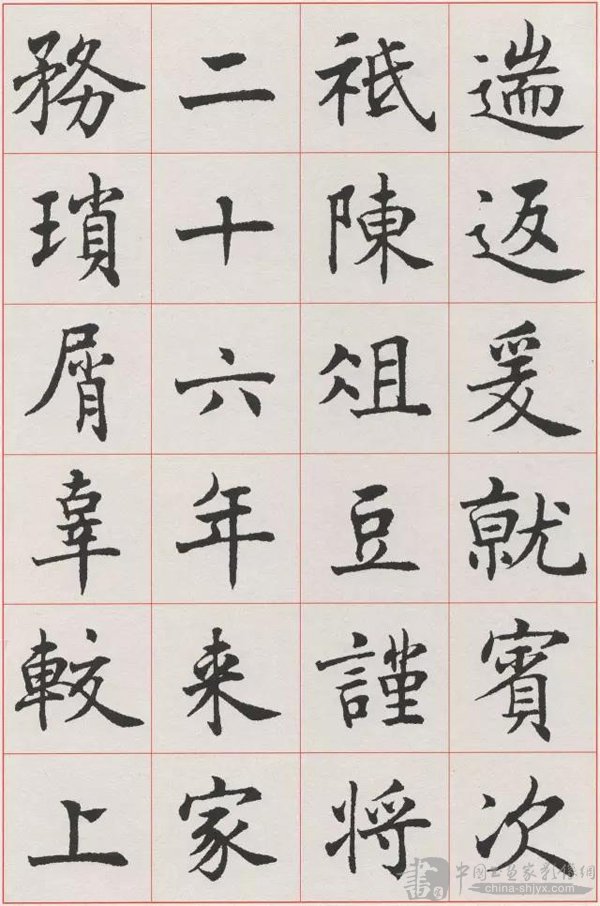 遄返爰就賓次
祇陳俎豆謹將
二十六年来家
務瑣屑辜較上
書 中国书画家影像網
china-shjyx.com